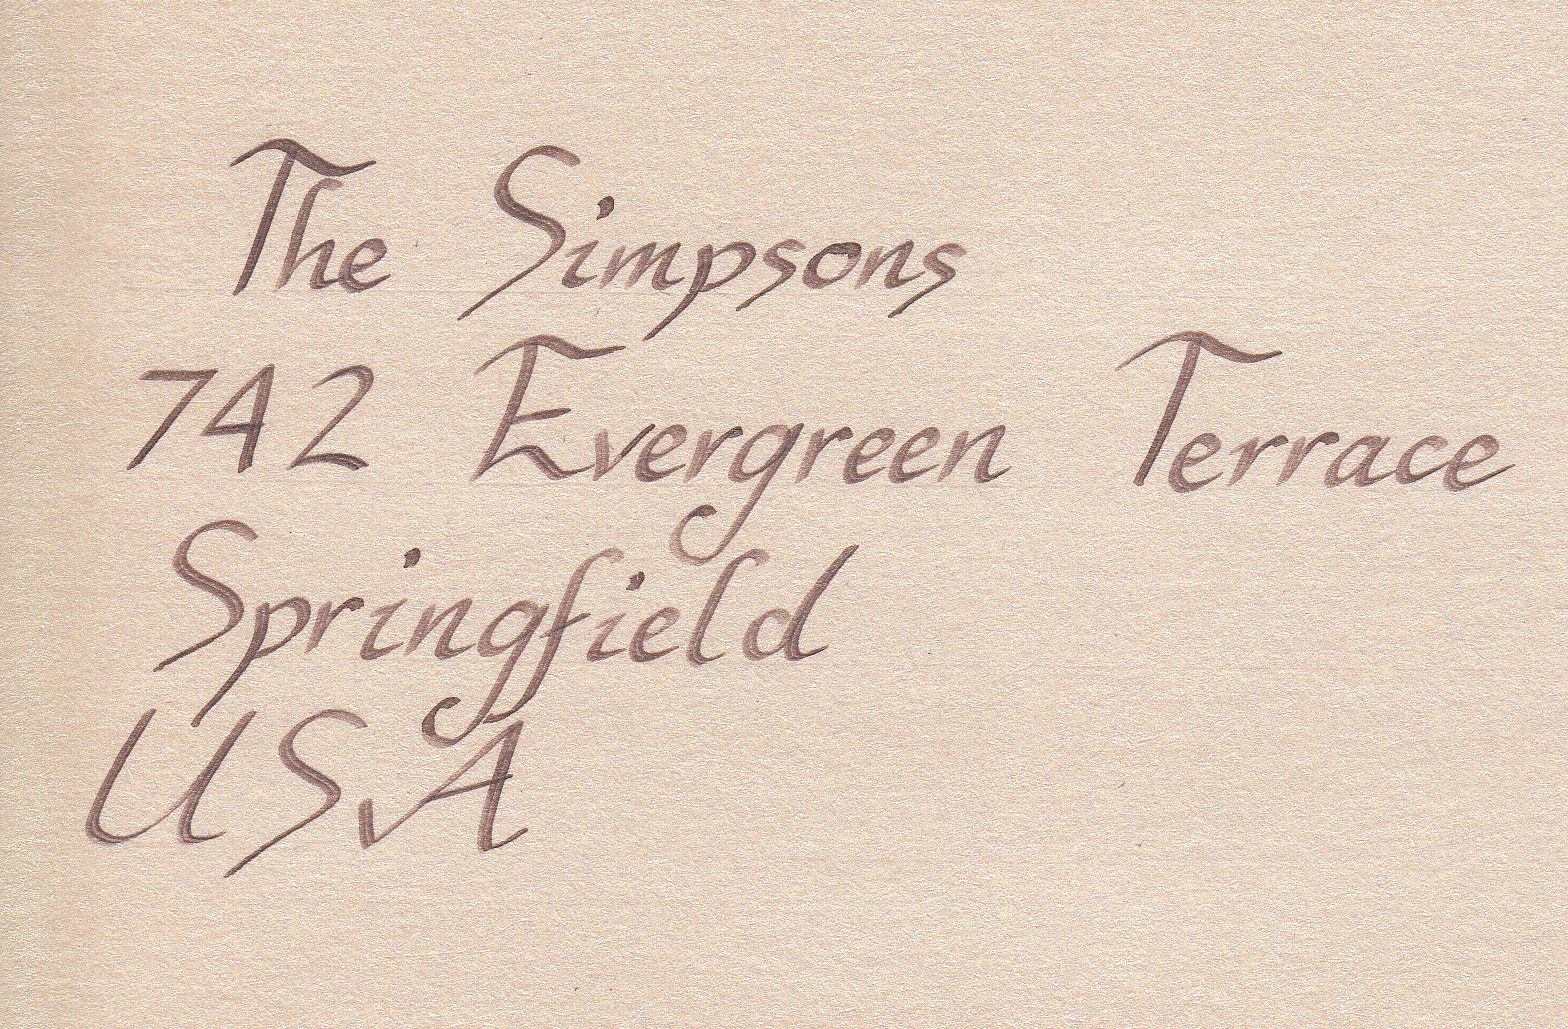 The Simpsons
742 Evergreen Terrace
Springfield
USA